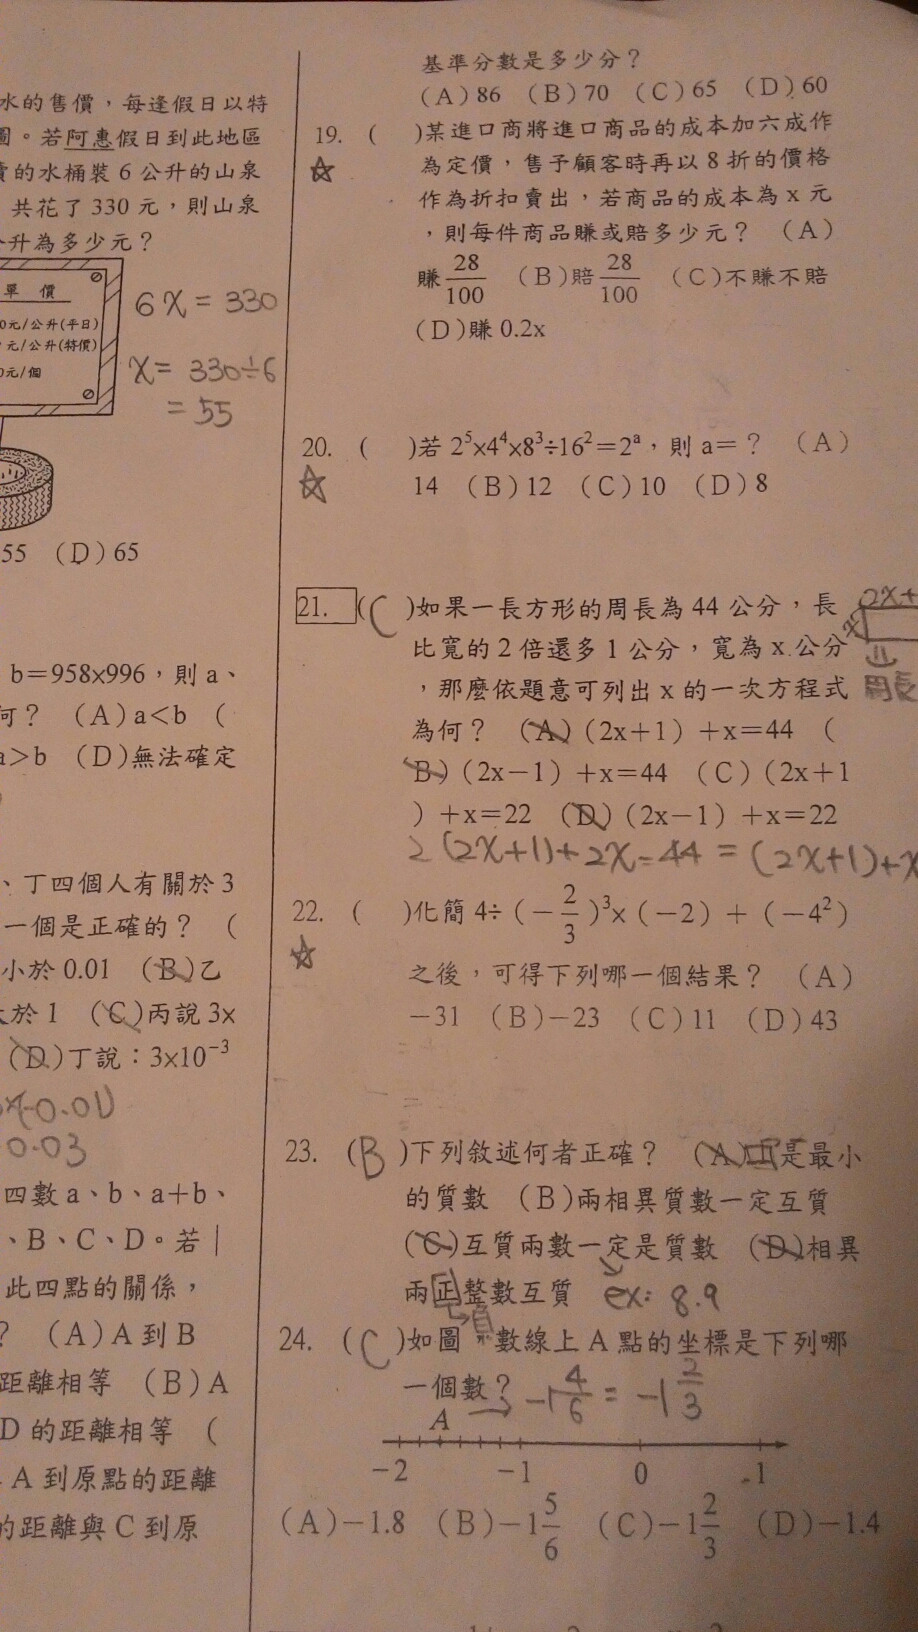 水的售價，每逢假日以特
圖。若阿惠假日到此地區
的水桶裝6公升的山泉
共花了330元，則山泉
升為多少元？
單價
0元/公升(平日)
元/公升(特價)
0元/個
6x=330
x=330÷6
=55
55 (D)65
b=958×996，則a、
何？ (A)a<b (
a>b (D)無法確定
、丁四個人有關於3
一個是正確的？ (
小於0.01 (B)乙
於1 (C)丙說3x
(D)丁說：3×10⁻³
-0.01)
0.03
四數a、b、a+b、
、B、C、D。若|
此四點的關係，
？ (A)A到B
距離相等 (B)A
D的距離相等 (
A到原點的距離
的距離與C到原
基準分數是多少分？
(A)86 (B)70 (C)65 (D)60
19. ( )某進口商將進口商品的成本加六成作
☆ 為定價，售予顧客時再以8折的價格
作為折扣賣出，若商品的成本為x元
，則每件商品賺或賠多少元？ (A)
賺28/100 (B)賠28/100 (C)不賺不賠
(D)賺0.2x
20. ( )若2⁵×4⁴×8³÷16²=2ᵃ，則a=？ (A)
☆ 14 (B)12 (C)10 (D)8
21. (C)如果一長方形的周長為44公分，長 2x+
比寬的2倍還多1公分，寬為x公分 x
，那麼依題意可列出x的一次方程式 周長
為何？ (A)(2x+1)+x=44 (
B)(2x-1)+x=44 (C)(2x+1
)+x=22 (D)(2x-1)+x=22
2(2x+1)+2x=44=(2x+1)+x
22. ( )化簡4÷(-2/3)³×(-2)+(-4²)
☆ 之後，可得下列哪一個結果？ (A)
-31 (B)-23 (C)11 (D)43
23. (B)下列敘述何者正確？ (A)1是最小
的質數 (B)兩相異質數一定互質
(C)互質兩數一定是質數 (D)相異
兩正整數互質 ex: 8.9
負
24. (C)如圖，數線上A點的坐標是下列哪
一個數？ → -1 4/6 = -1 2/3
A
-2 -1 0 1
(A)-1.8 (B)-1 5/6 (C)-1 2/3 (D)-1.4